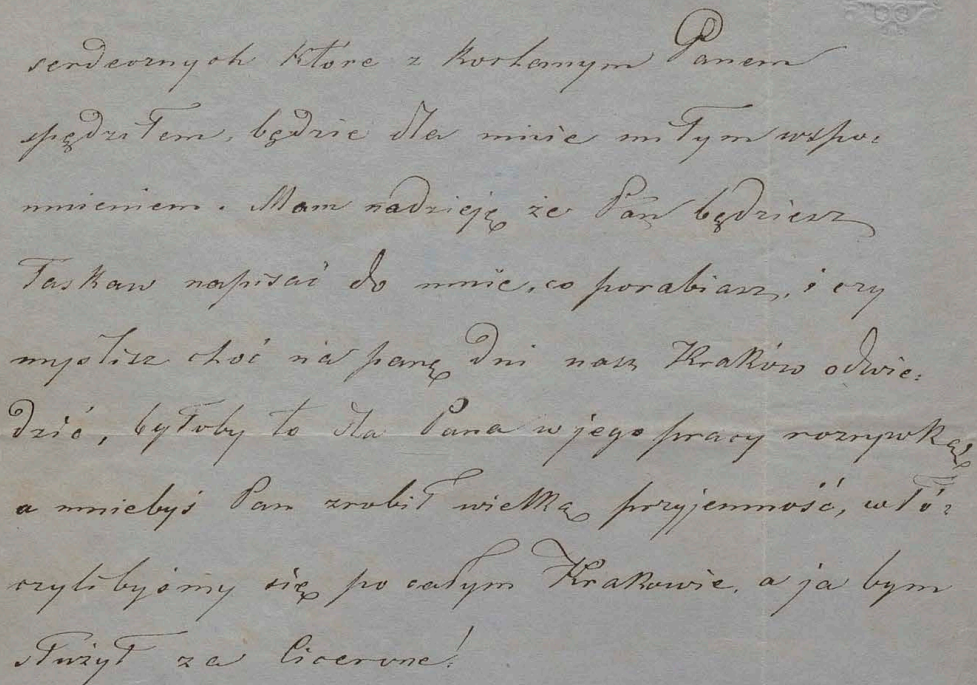 serdecznych które z kochanym Panem
spędziłem, będzie dla mnie miłym wspo:
mnieniem. Mam nadzieję że Pan będziesz
łaskaw napisać do mnie, co porabiasz, i czy
myślisz choć na parę dni nasz Kraków odwie:
dzić, byłoby to dla Pana w jego pracy rozrywką,
a mniebyś Pan zrobił wielką przyjemność, włó:
czylibyśmy się po całym Krakowie, a ja bym
służył za Cicerone!